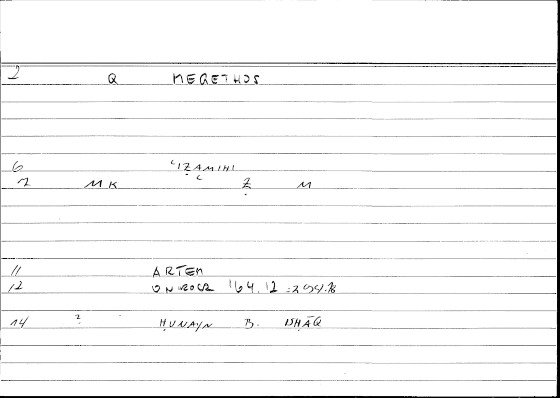 2 Q MEGETHOS
6 ʿIẒAMIHI
7 MK Ẓ M
11 ARTEM
12 ONIROCR 164.12 :294.16
14 ? ḤUNAYN B. ISḤĀQ